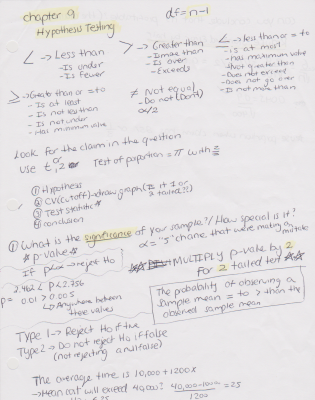 chapter 9
Hypothesis Testing
df = n-1
< → Less than
- Is under
- Is fewer
> → Greater than
- Is more than
- Is over
- Exceeds
≤ → less than or = to
- is at most
- Has maximum value
- Not greater than
- Does not exceed
- Does not go over
- Is not more than
≥ → Greater than or = to
- Is at least
- Is not less than
- Is not under
- Has minimum value
≠ Not equal
- Do not (Don't)
α/2
Look for the claim in the question
Use t, z or Test of proportion = π with z
① Hypothesis
② CV (cutoff) - draw graph (Is it 1 or 2 tailed??)
③ Test statistic
④ conclusion
① What is the significance of your sample?/How special is it?
* p-value *
α = "5" chance that were making a mistake
If p<α → reject Ho
2.462 < P < 2.756
p = 0.01 > 0.005
↳ Anywhere between these values
MULTIPLY p-value by 2
for 2 tailed test
The probability of observing a
sample mean = to > than the
observed sample mean
Type 1 → Reject Ho if true
Type 2 → Do not reject Ho if false
(not rejecting a null false)
The average time is 10,000 + 1200x
→ Mean cost will exceed 40,000?
= 25
1200